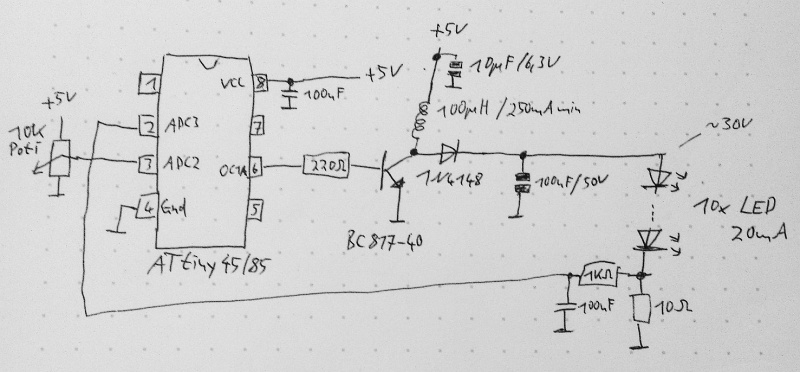 +5V
10µF/6,3V
1
VCC
8
+5V
100nF
100µH/250mA min
+5V
10K
Poti
2
ADC3
7
~30V
3
ADC2
OC1A
6
220Ω
1N4148
100nF/50V
10x LED
20mA
4
Gnd
5
BC817-40
ATtiny 45/85
1KΩ
100nF
10Ω